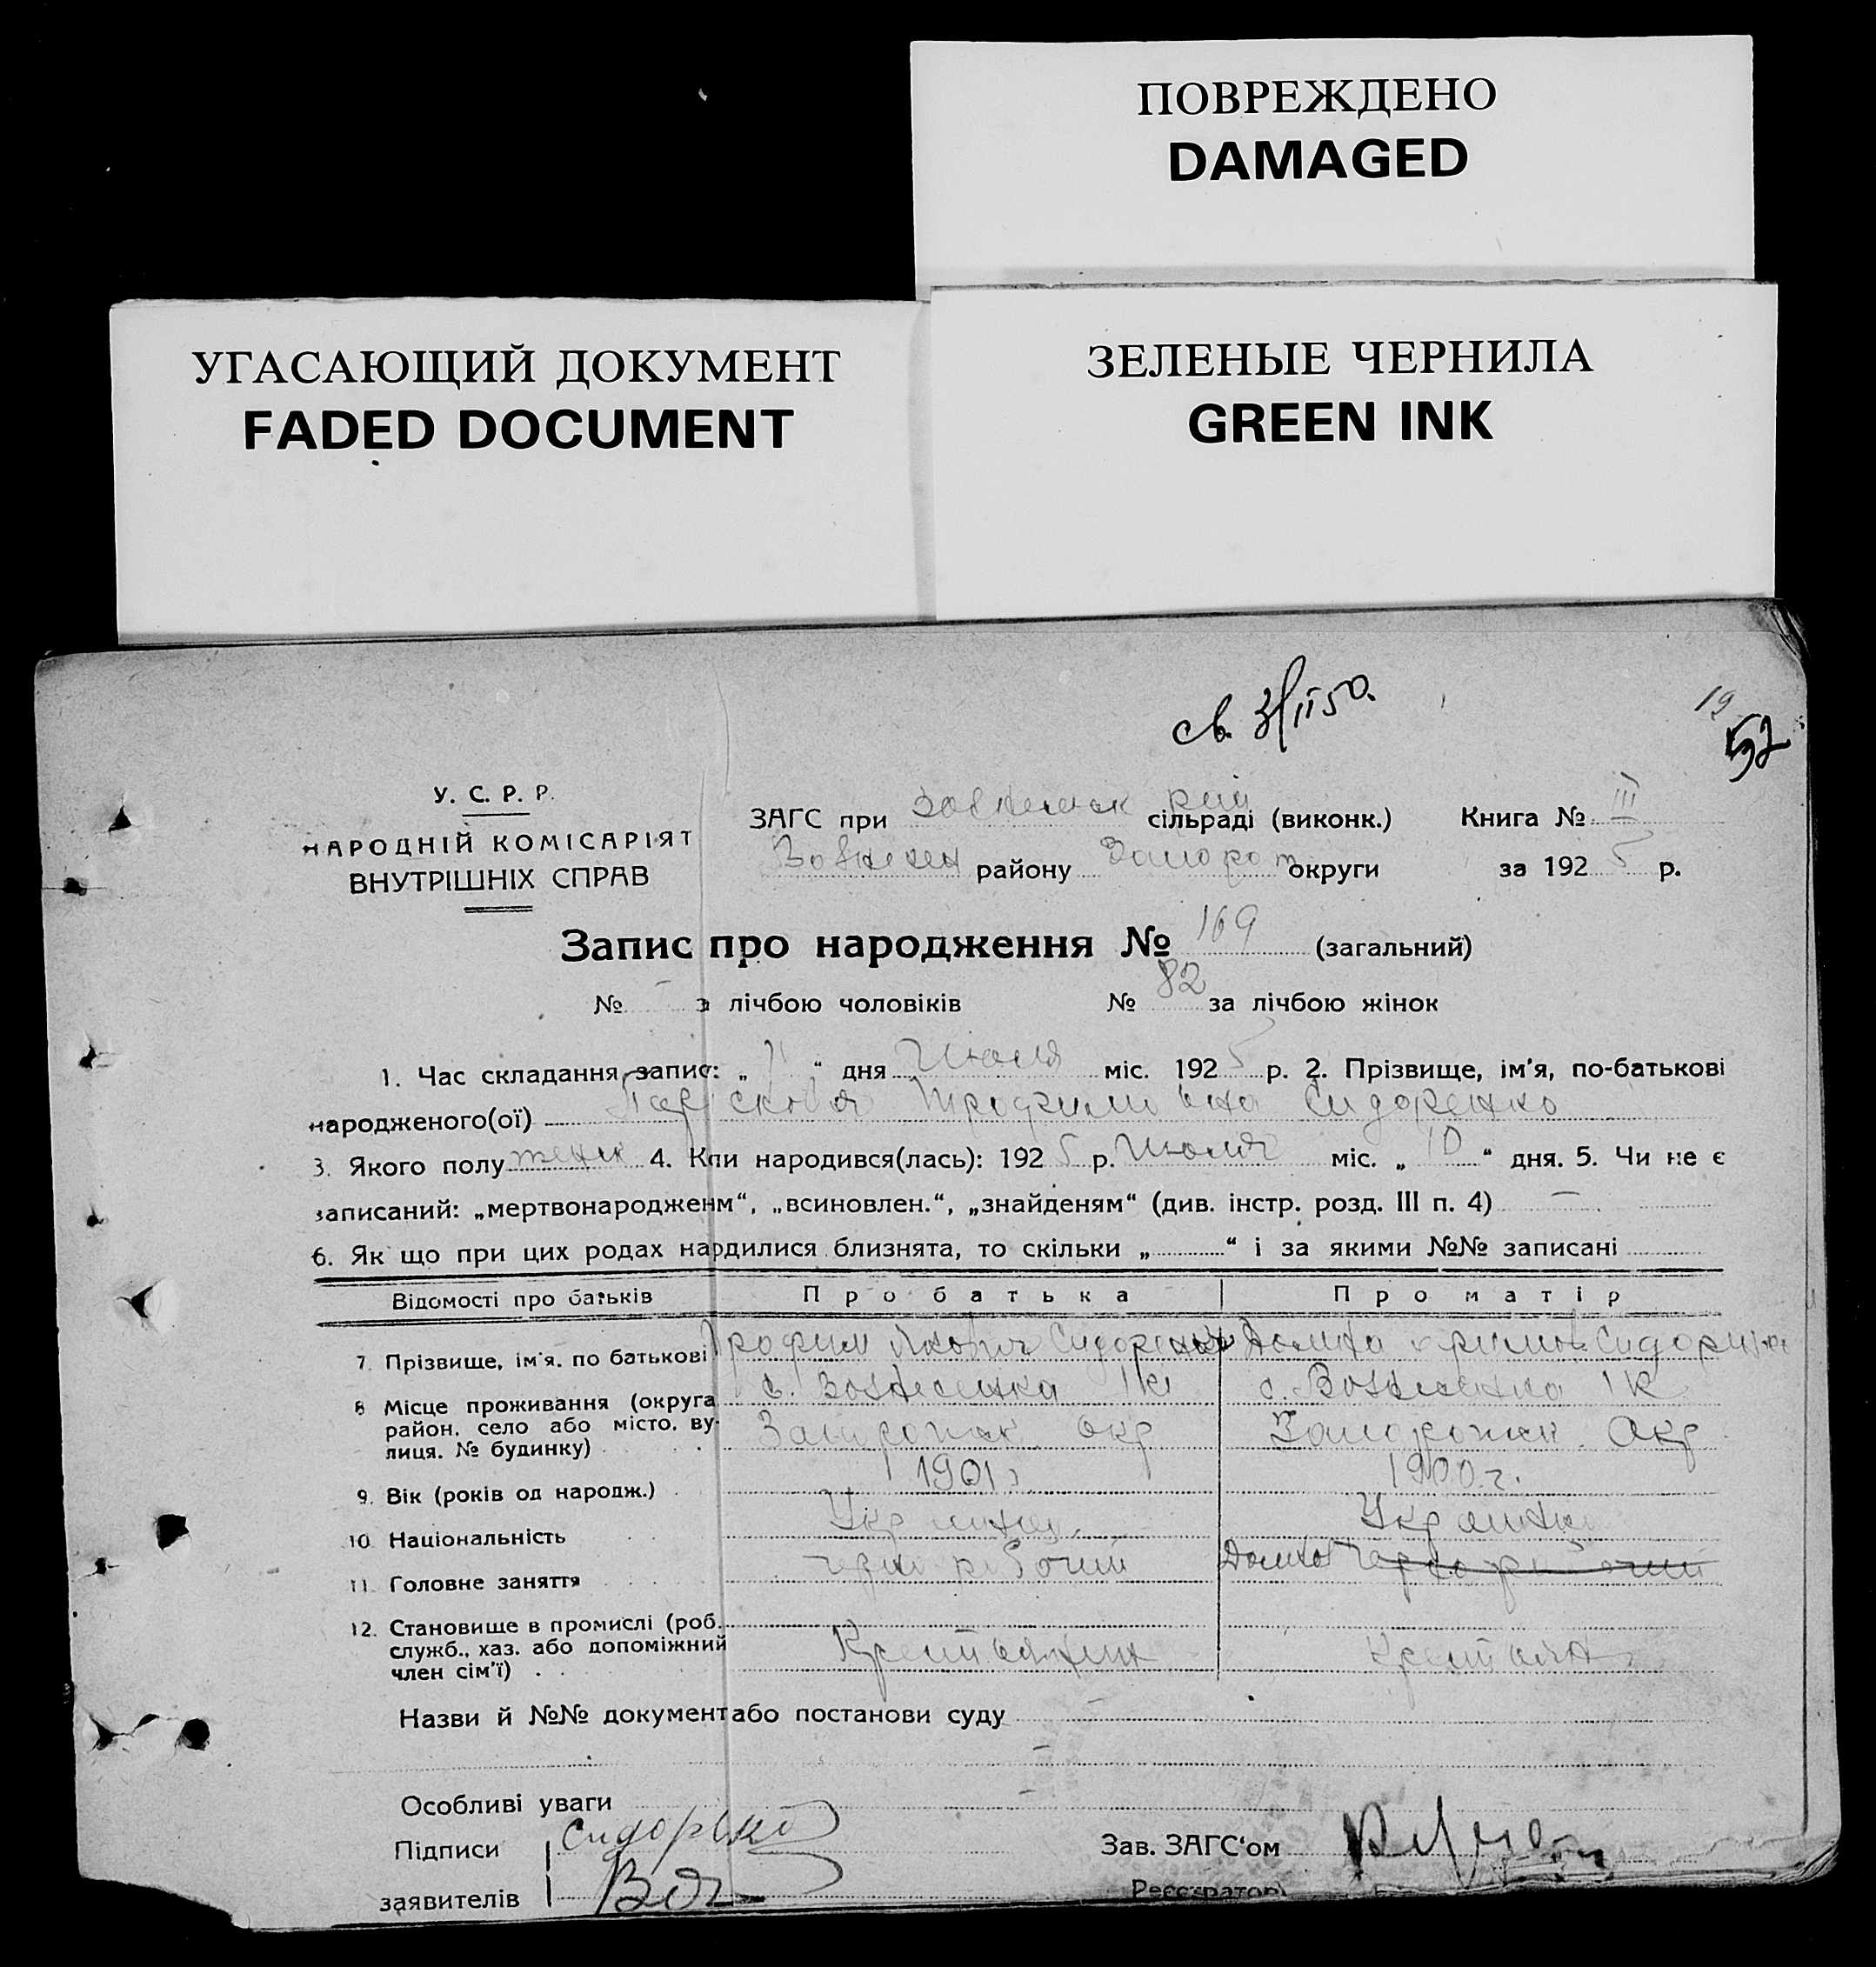 ПОВРЕЖДЕНО
DAMAGED
УГАСАЮЩИЙ ДОКУМЕНТ
FADED DOCUMENT
ЗЕЛЕНЫЕ ЧЕРНИЛА
GREEN INK
св. 3/II 50.
19
52
У. С. Р. Р.
НАРОДНІЙ КОМІСАРІЯТ
ВНУТРІШНІХ СПРАВ
ЗАГС при сільраді (виконк.) Книга № III
району округи за 1925 р.
Запис про народження № 169 (загальний)
№ - з лічбою чоловіків № 82 за лічбою жінок
1. Час складання запис: „ “ дня Июля міс. 1925 р. 2. Прізвище, ім'я, по-батькові
народженого(ої) Парасковія Трофимовна Сидоренко
3. Якого полу женск 4. Кли народився(лась): 1925 р. Июля міс. „10“ дня. 5. Чи не є
записаний: „мертвонародженм“, „всиновлен.“, „знайденям“ (див. інстр. розд. III п. 4) —
6. Як що при цих родах нардилися близнята, то скільки „ “ і за якими №№ записані
Відомості про батьків Про батька Про матір
7. Прізвище, ім'я. по батькові Трофим Якович Сидоренко Домна Сидоренко
8 Місце проживання (округа с. Вознесенка 1 к с. Вознесенка 1 к
район. село або місто. ву- Запорожск окр Запорожск Окр
лиця. № будинку)
9. Вік (років од народж.) 1901 г 1900 г.
10 Національність Украинец Украинка
11 Головне заняття чернорабочий Домхоз чернорабочий
12. Становище в промислі (роб.
служб., хаз. або допоміжний Крестьянин Крестьян
член сім'ї)
Назви й №№ документ або постанови суду —
—
Особливі уваги —
Підписи Сидоренко Зав. ЗАГС'ом
заявителів Реєстратор